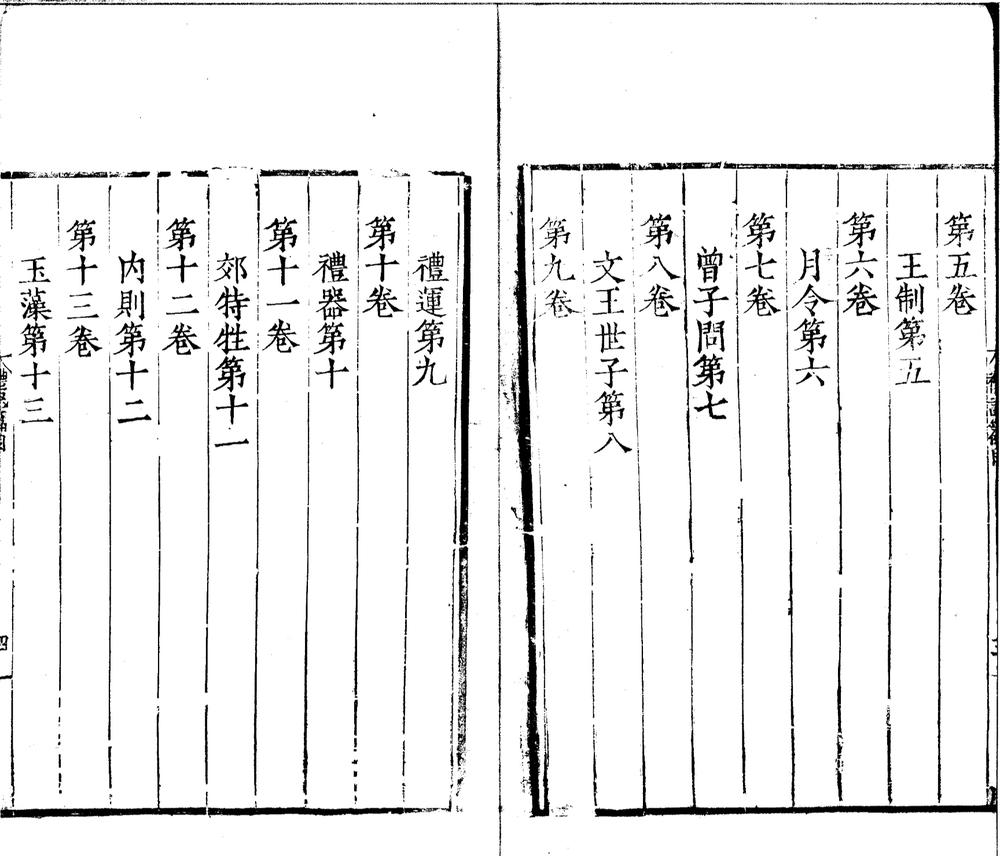 第五卷
王制第五
第六卷
月令第六
第七卷
曾子問第七
第八卷
文王世子第八
第九卷
禮運第九
第十卷
禮器第十
第十一卷
郊特牲第十一
第十二卷
内則第十二
第十三卷
玉藻第十三
四